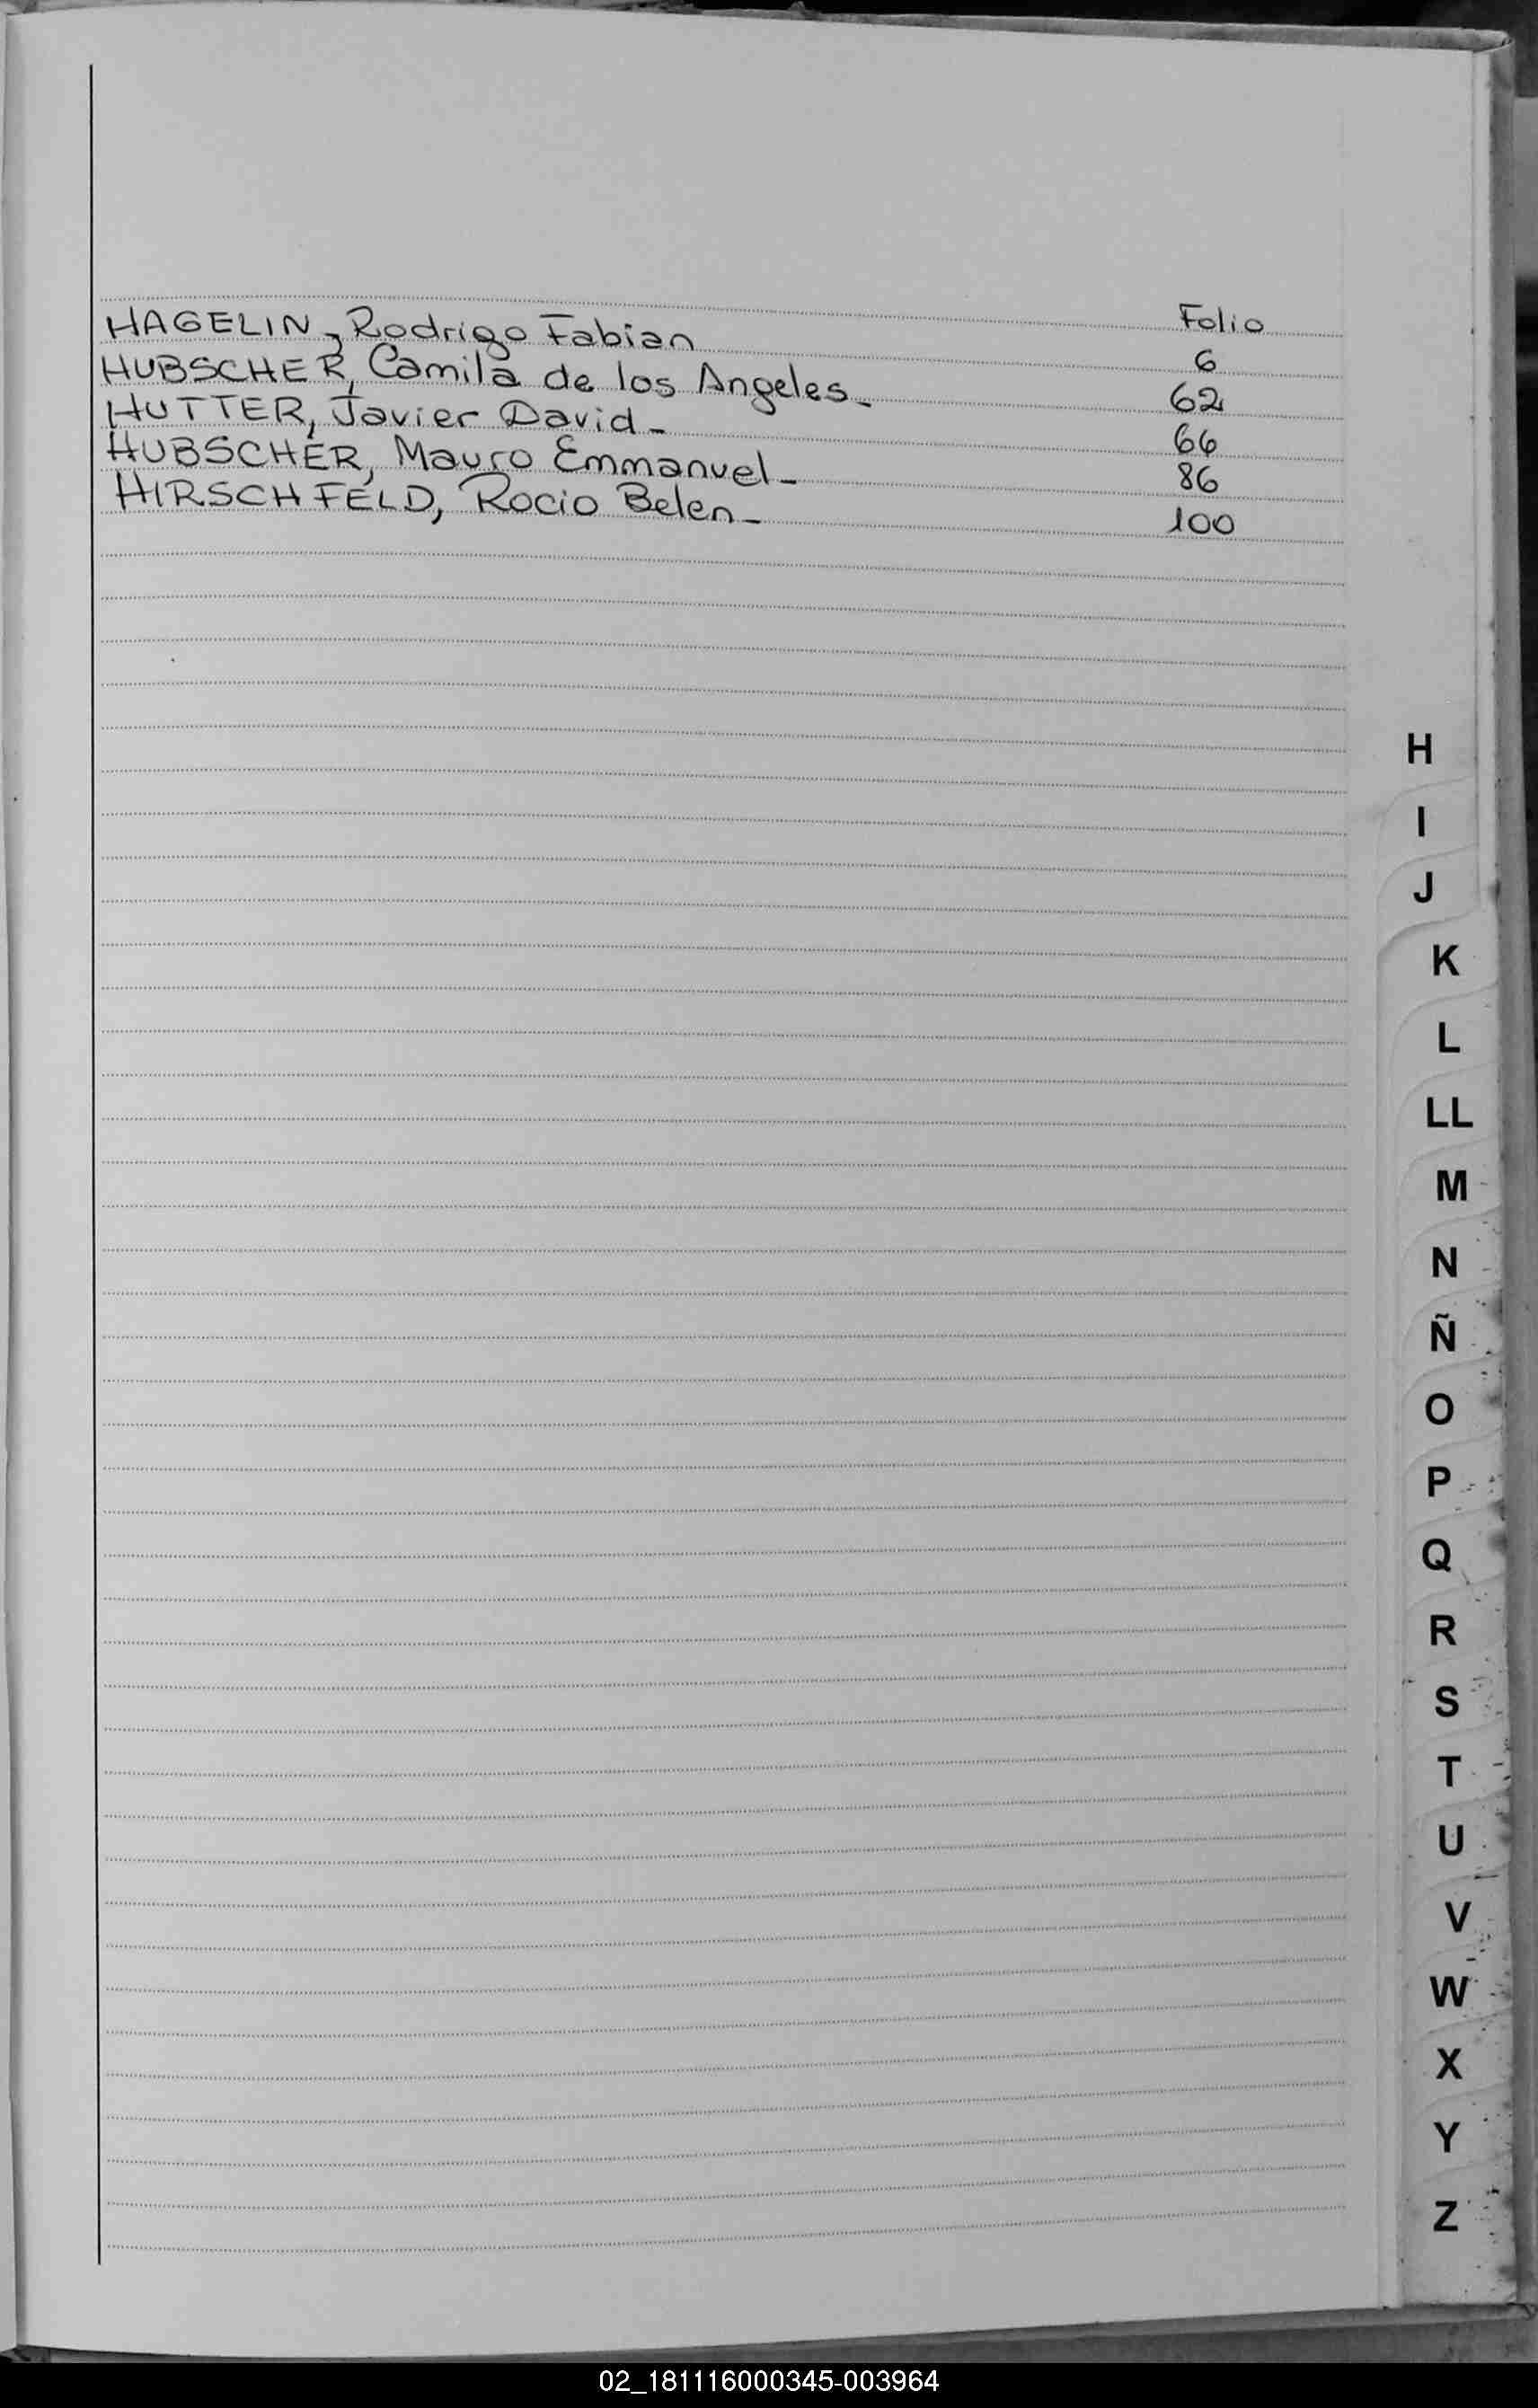 Folio
HAGELIN, Rodrigo Fabian 6
HUBSCHER, Camila de los Angeles- 62
HUTTER, Javier David- 66
HUBSCHER, Mauro Emmanuel- 86
HIRSCHFELD, Rocio Belen- 100
H
I
J
K
L
LL
M
N
Ñ
O
P
Q
R
S
T
U
V
W
X
Y
Z
02_181116000345-003964